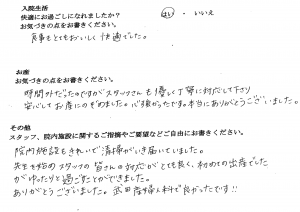 入院生活
快適にお過ごしになれましたか? はい ・ いいえ
お気づきの点をお書きください。
食事もとてもおいしく快適でした。
お産
お気づきの点をお書きください。
時間外だったのですがスタッフさんも優しく丁寧に対応して下さり
安心してお産にのぞめました。心強かったです。本当にありがとうございました。
その他
スタッフ、院内施設に関するご指摘やご要望などご自由にお書きください。
院内施設もきれいで清掃がいき届いていました。
先生を始めスタッフの皆さんの対応がとても良く、初めての出産でした
がゆったりと過ごすことができました。
ありがとうございました。武田産婦人科で良かったです!!